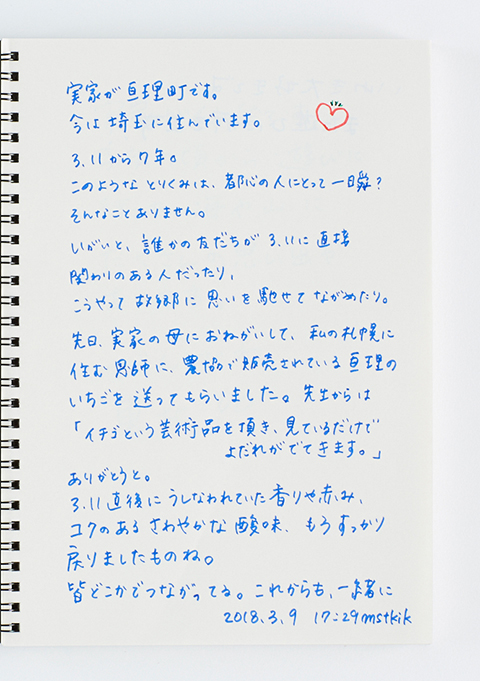 実家が亘理町です。
今は埼玉に住んでいます。
3.11から7年。
このようなとりくみは、都心の人にとって一日?
そんなことありません。
いがいと、誰かの友だちが3.11に直接
関わりのある人だったり、
こうやって故郷に思いを馳せてながめたり。
先日、実家の母におねがいして、私の札幌に
住む恩師に、農なかで販売されている亘理の
いちごを送ってもらいました。先生からは
「イチゴという芸術品を頂き、見ているだけで
よだれがでてきます。」
ありがとうと。
3.11直後にうしなわれていた香りや赤み、
コクのあるさわやかな酸味、もうすっかり
戻りましたものね。
皆どこかでつながってる。これからも、一緒に
2018.3.9 17:29mstkik